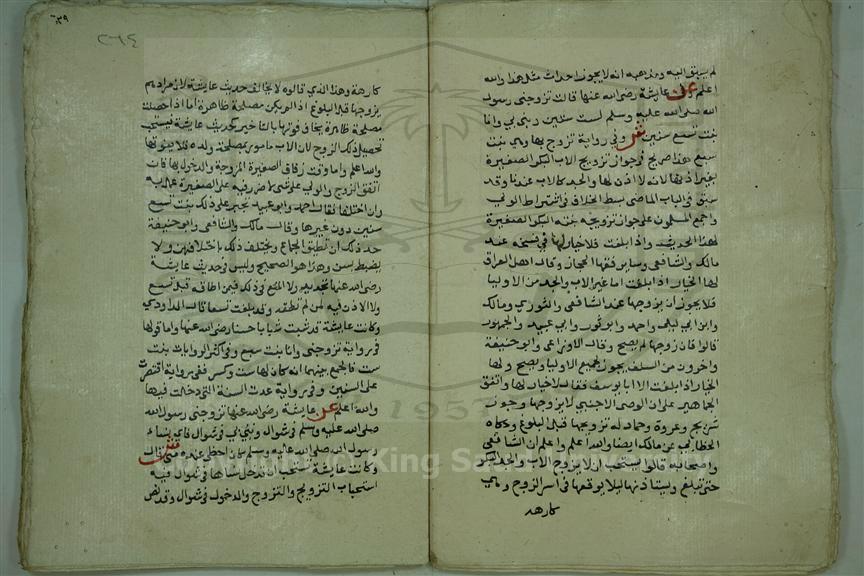 لم يسبق اليه ومذهبه انه لا يجوز احداث مثل هذا والله
اعلم وعن عايشة رضي الله عنها قالت تزوجني رسول
الله صلى الله عليه وسلم لست سنين وبنى بي وانا
بنت تسع سنين ش وفي رواية تزوج بها وهي بنت
سبع هذا صريح في جواز تزويج الاب البكر الصغيرة
بغير اذنها لانه لا اذن لها والجد كالاب عندنا وقد
سبق في الباب الماضي بسط الخلاف في اشتراط الولي
واجمع المسلمون على جواز تزويجه بنته البكر الصغيرة
لهذا الحديث واذا بلغت فلا خيار لها في فسخه عند
مالك والشافعي وساير فقها الحجاز وقال اهل العراق
لها الخيار اذا بلغت اما غير الاب والجد من الاوليا
فلا يجوز ان يزوجها عند الشافعي والثوري ومالك
وابن ابي ليلى واحمد وابو ثور وابي عبيد والجمهور
قالوا فان زوجها لم يصح وقال الاوزاعي وابو حنيفة
واخرون من السلف يجوز لجميع الاوليا ويصح ولها
الخيار اذا بلغت الا ابا يوسف فقال لا خيار لها واتفق
الجماهير على ان الوصي الاجنبي لا يزوجها وجوز
شريح وعروة وحماد له تزويجها قبل البلوغ وحكاه
الخطابي عن مالك ايضا والله اعلم واعلم ان الشافعي
واصحابه قالوا يستحب ان لا يزوج الاب والجد البكر
حتى تبلغ ويستاذنها ليلا يوقعها في اسر الزوج وهي
كارهه
٣٩
٢٦٤
كارهة وهذا الذي قالوه لا يخالف حديث عايشة لان مرادهم
يزوجها قبل البلوغ اذا لم يكن مصلحة ظاهرة اما اذا حصلت
مصلحة ظاهرة يخاف فوتها بالتاخير كحديث عايشة فيستحب
تحصيل ذلك الزوج لان الاب مامور بمصلحة ولده فلا يفوتها
والله اعلم واما وقت زفاف الصغيرة المزوجة والدخول بها فان
اتفق الزوج والولي على شي لا ضرر فيه على الصغيرة عمل به
وان اختلفا فقال احمد وابو عبيد تجبر على ذلك بنت تسع
سنين دون غيرها وقال مالك والشافعي وابو حنيفة
حد ذلك ان تطيق الجماع ويختلف ذلك باختلافهن ولا
يضبط بسن وهذا هو الصحيح وليس في حديث عايشة
رضي الله عنها تحديد ولا المنع في ذلك فيمن اطاقته قبل تسع
ولا الاذن فيه لمن لم تطقه وقد بلغت تسعا قال الداودي
وكانت عايشة قد شبت شبابا حسنا رضي الله عنها واما قولها
في رواية تزوجني وانا بنت سبع وفي اكثر الروايات بنت
ست فالجمع بينهما انه كان لها ست وكسر ففي رواية اقتصرت
على السنين وفي رواية عدت السنة التي دخلت فيها
والله اعلم عن عايشة رضي الله عنها تزوجني رسول الله
صلى الله عليه وسلم في شوال وبنى بي في شوال فاي نساء
رسول الله صلى الله عليه وسلم كان احظى عنده مني قال
وكانت عايشة تستحب ان تدخل نساها في شوال ش فيه
استحباب التزويج والتزوج والدخول في شوال وقد نص
1957
King Saud University